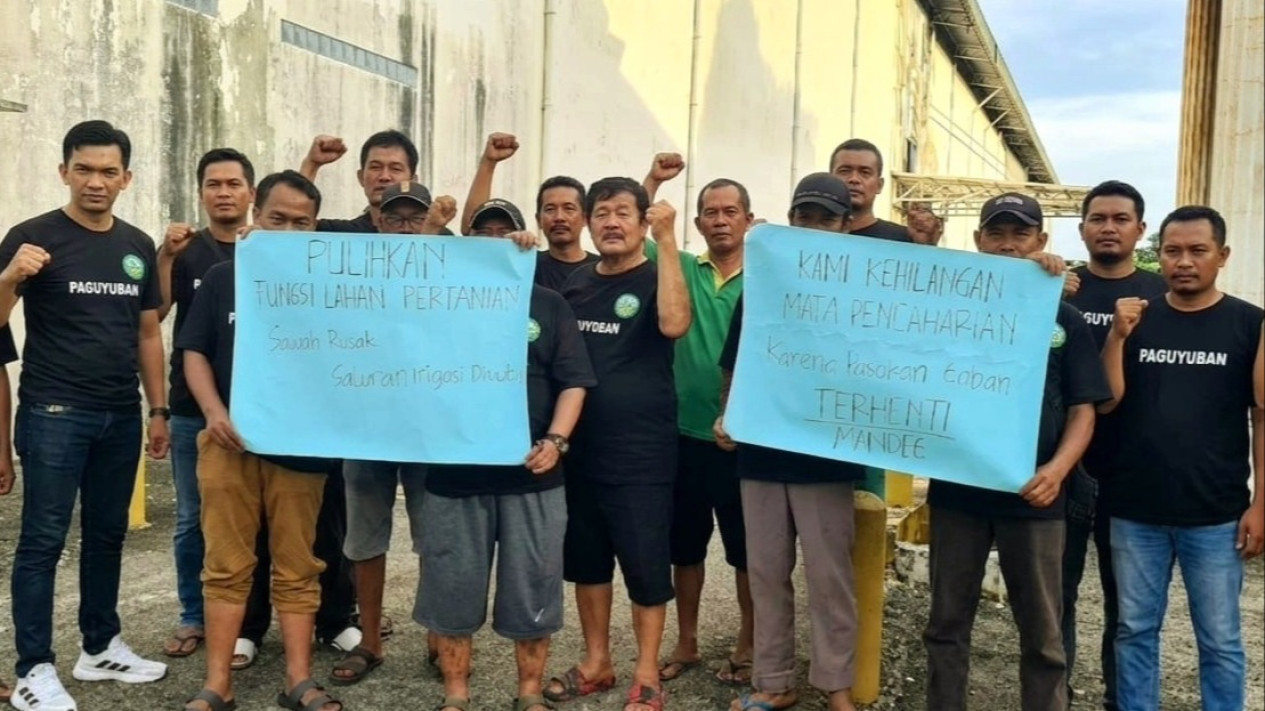 PAGUYUBAN
PULIHKAN
FUNGSI LAHAN PERTANIAN
Sawah Rusak
Saluran Irigasi
GUYDEAN
KAMI KEHILANGAN
MATA PENCAHARIAN
Karena Pasokan Gaban
TERHENTI
MANDEG
PAGUY
PAGUYUBAN